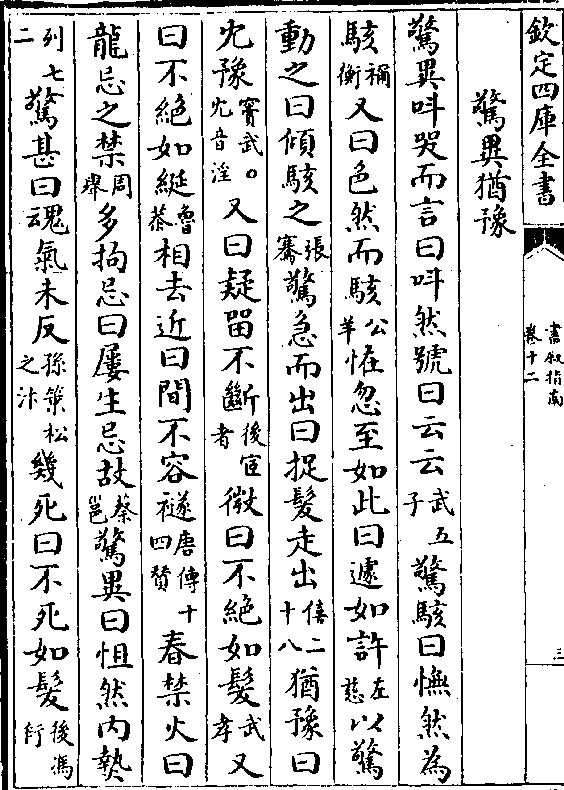 欽定四庫全書
書叙指南
卷十二
三
驚異猶豫
驚異呌哭而言曰呌然號曰云云武五子驚駭曰憮然為
駭禰衡又曰色然而駭公羊恠忽至如此曰遽如許左慈以驚
動之曰傾駭之張騫驚急而出曰捉髮走出僖二十八猶豫曰
冘豫竇武○冘音淫又曰疑畱不斷後宦者微曰不絶如髮武孝又
曰不絶如綖魯恭相去近曰間不容襚唐傳十四贊春禁火曰
龍忌之禁周舉多拘忌曰屢生忌故蔡邕驚異曰怛然内熱
列七二驚甚曰魂氣未反孫策松之注幾死曰不死如髮後馮衍